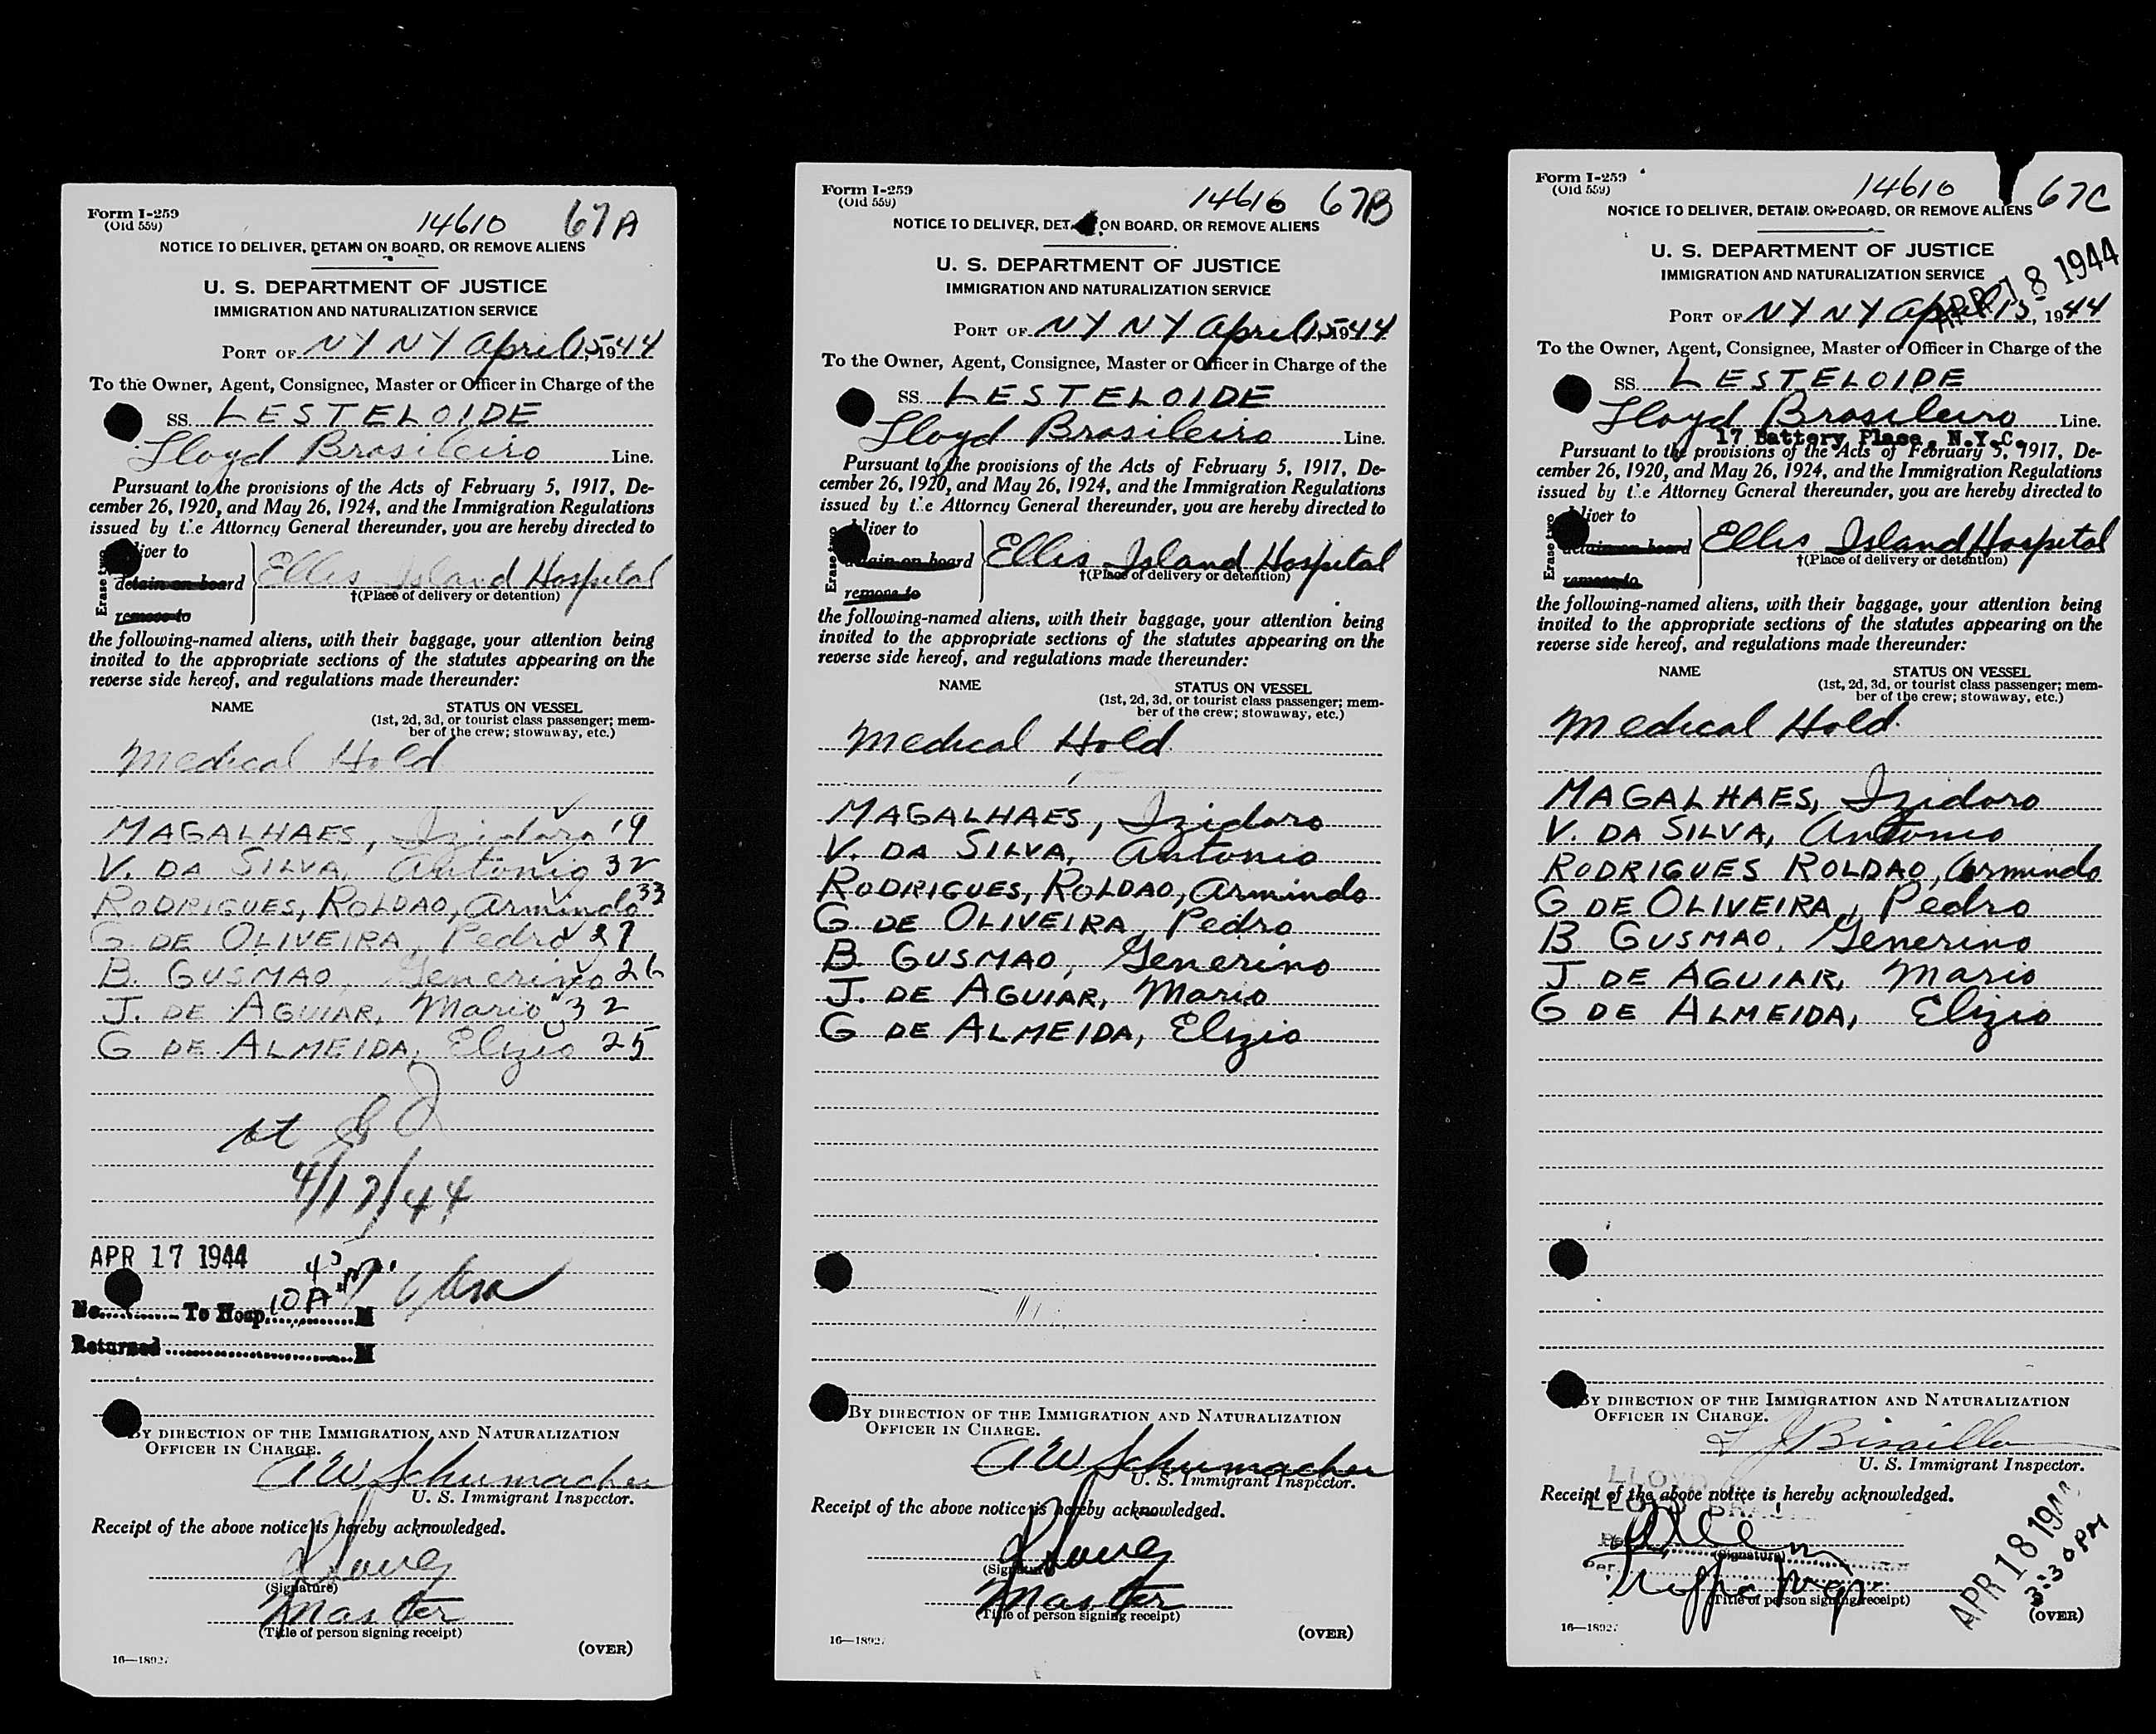 Form I-259
(Old 559)
14610 67A
NOTICE TO DELIVER, DETAIN ON BOARD, OR REMOVE ALIENS
U. S. DEPARTMENT OF JUSTICE
IMMIGRATION AND NATURALIZATION SERVICE
PORT OF NY NY April 15, 1944
To the Owner, Agent, Consignee, Master or Officer in Charge of the
SS. LESTELOIDE
Lloyd Brasileiro Line.
Pursuant to the provisions of the Acts of February 5, 1917, De-
cember 26, 1920, and May 26, 1924, and the Immigration Regulations
issued by the Attorney General thereunder, you are hereby directed to
Erase two
liver to
detain on board
remove to
Ellis Island Hospital
†(Place of delivery or detention)
the following-named aliens, with their baggage, your attention being
invited to the appropriate sections of the statutes appearing on the
reverse side hereof, and regulations made thereunder:
NAME STATUS ON VESSEL
(1st, 2d, 3d, or tourist class passenger; mem-
ber of the crew; stowaway, etc.)
Medical Hold
MAGALHAES, Izidoro 19
V. DA SILVA, Antonio 32
RODRIGUES, ROLDAO, Armindo 33
G. DE OLIVEIRA, Pedro 27
B. GUSMAO, Generino 26
J. DE AGUIAR, Mario 32
G DE ALMEIDA, Elizio 25
4/17/44
APR 17 1944
No. To Hosp. 10 A M
Returned M
BY DIRECTION OF THE IMMIGRATION AND NATURALIZATION
OFFICER IN CHARGE.
A W Schumacher
U. S. Immigrant Inspector.
Receipt of the above notice is hereby acknowledged.
(Signature)
Master
(Title of person signing receipt)
16—18927 (OVER)
Form I-259
(Old 559)
14610 67B
NOTICE TO DELIVER, DET ON BOARD, OR REMOVE ALIENS
U. S. DEPARTMENT OF JUSTICE
IMMIGRATION AND NATURALIZATION SERVICE
PORT OF NY NY April 15 1944
To the Owner, Agent, Consignee, Master or Officer in Charge of the
SS. LESTELOIDE
Lloyd Brasileiro Line.
Pursuant to the provisions of the Acts of February 5, 1917, De-
cember 26, 1920, and May 26, 1924, and the Immigration Regulations
issued by the Attorney General thereunder, you are hereby directed to
Erase two
liver to
detain on board
remove to
Ellis Island Hospital
†(Place of delivery or detention)
the following-named aliens, with their baggage, your attention being
invited to the appropriate sections of the statutes appearing on the
reverse side hereof, and regulations made thereunder:
NAME STATUS ON VESSEL
(1st, 2d, 3d, or tourist class passenger; mem-
ber of the crew; stowaway, etc.)
Medical Hold
MAGALHAES, Izidoro
V. DA SILVA, Antonio
RODRIGUES, ROLDAO, Armindo
G. DE OLIVEIRA, Pedro
B GUSMAO, Generino
J. DE AGUIAR, Mario
G DE ALMEIDA, Elizio
BY DIRECTION OF THE IMMIGRATION AND NATURALIZATION
OFFICER IN CHARGE.
A W Schumacher
U. S. Immigrant Inspector.
Receipt of the above notice is hereby acknowledged.
(Signature)
Master
(Title of person signing receipt)
16—18927 (OVER)
Form I-259
(Old 559)
14610 67C
NOTICE TO DELIVER, DETAIN ON BOARD, OR REMOVE ALIENS
U. S. DEPARTMENT OF JUSTICE
IMMIGRATION AND NATURALIZATION SERVICE
APR 18 1944
PORT OF NY NY April 15, 1944
To the Owner, Agent, Consignee, Master or Officer in Charge of the
SS. LESTELOIDE
Lloyd Brasileiro Line.
17 Battery Place, N.Y.C.
Pursuant to the provisions of the Acts of February 5, 1917, De-
cember 26, 1920, and May 26, 1924, and the Immigration Regulations
issued by the Attorney General thereunder, you are hereby directed to
Erase two
liver to
detain on board
remove to
Ellis Island Hospital
†(Place of delivery or detention)
the following-named aliens, with their baggage, your attention being
invited to the appropriate sections of the statutes appearing on the
reverse side hereof, and regulations made thereunder:
NAME STATUS ON VESSEL
(1st, 2d, 3d, or tourist class passenger; mem-
ber of the crew; stowaway, etc.)
Medical Hold
MAGALHAES, Izidoro
V. DA SILVA, Antonio
RODRIGUES ROLDAO, Armindo
G DE OLIVEIRA, Pedro
B GUSMAO, Generino
J DE AGUIAR, Mario
G DE ALMEIDA, Elizio
BY DIRECTION OF THE IMMIGRATION AND NATURALIZATION
OFFICER IN CHARGE.
U. S. Immigrant Inspector.
Receipt of the above notice is hereby acknowledged.
LLOYD BRA
(Signature)
Per
Traffic Mgr
(Title of person signing receipt)
APR 18 1944
3:30 PM
16—18927 (OVER)